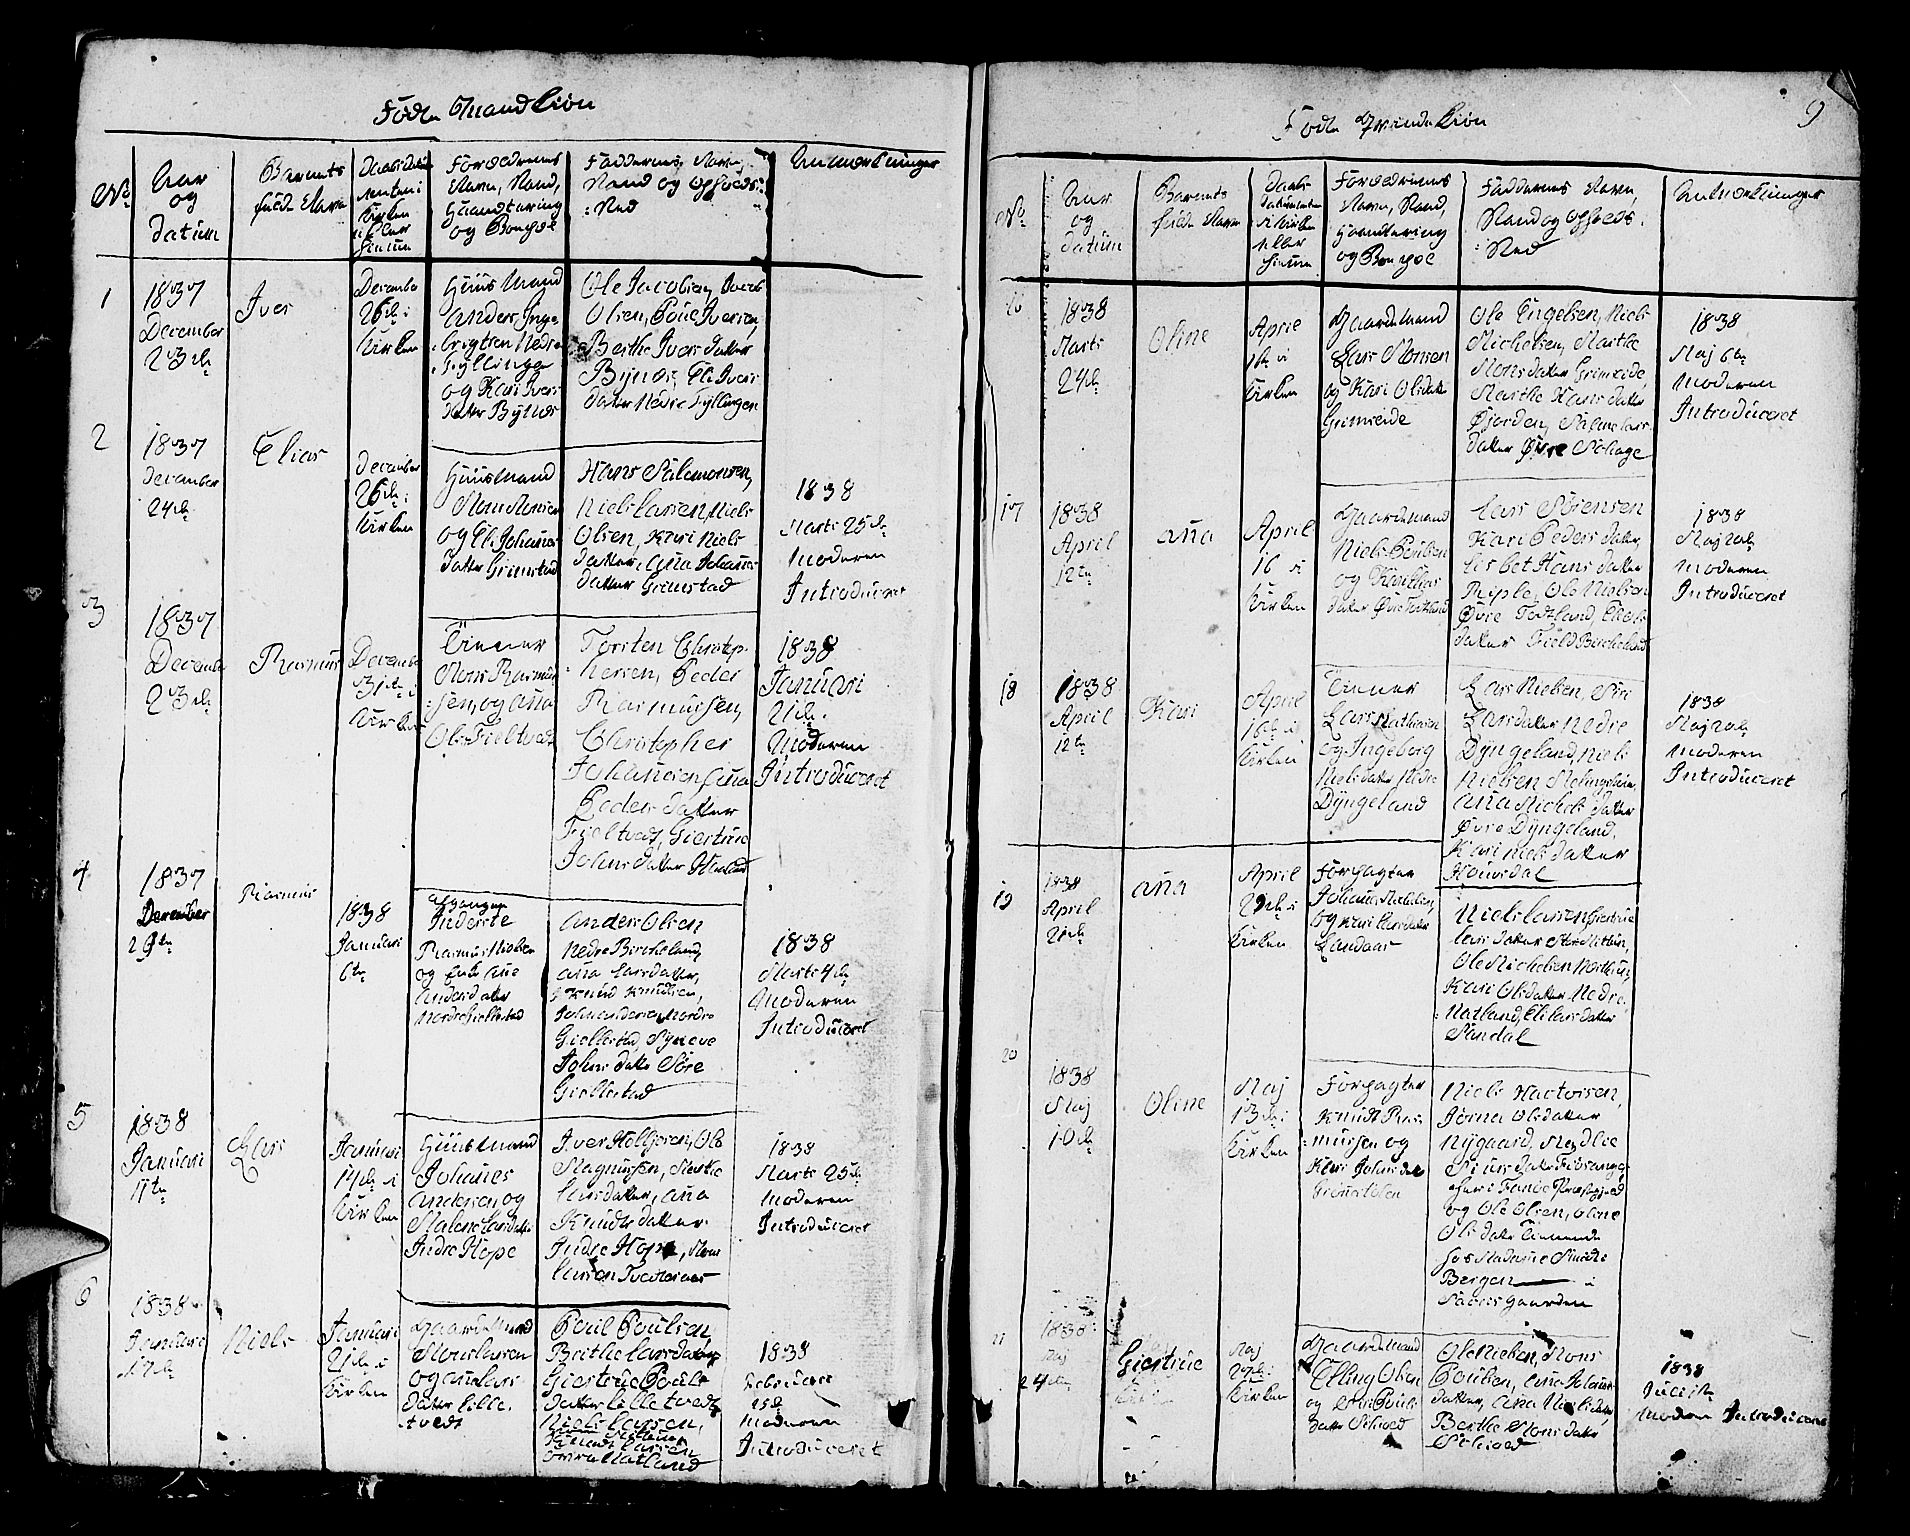 Fødte Mandkiøn
No
Aar
og
datum
Barnets
fulde Navn
Daabsdatu
menten i
Kirken
eller
Hiemme
Forældrenes
Navn, Stand,
Haandtæring
og Boepæl
Faddernes Navn,
Stand og Opholds-
Sted
Anmærkninger
1
1837
December
23de
Iver
December
26de i
Kirken
Huusmand
Anders Inge-
brigtsen Nedre
Fyllingen
og Kari Ivers
datter Bynæs
Ole Jacobsen, Iver
Olsen, Poul Iversen,
Berthe Ivers datter
Bynæs, Eli Ivers
datter Nedre Fyllingen
2
1837
December
24de
Elias
December
26de i
Kirken
Huusmand
Mons Monsen
og Eli Johannes
datter Grimstad
Hans Salamonsen,
Niels Larsen, Niels
Olsen, Kari Niels
datter, Ana Johannes
datter Grimstad
1838
Marts 25de
Moderen
Introduceret
3
1837
December
23de
Rasmus
December
31te i
Kirken
Tienner
Mons Rasmus-
sen, og Ana
Ols Fieltvedt
Torsten Christop-
hersen, Peder
Rasmussen,
Christopher
Johannesen, Ana
Peders datter
Fieltvedt, Giertrue
Johns datter
1838
Januari
21de
Moderen
Introduceret
4
1837
December
29te
Rasmus
1838
Januari
6te
Afgangne
Inderste
Rasmus Nielsen
og Enke Ane
Anders datter
Nordre Giellestad
Anders Olsen
Nedre Birkeland,
Ana Lars datter,
Knud Knudsen,
Johannes Nordre
Giellestad, Synneve
Johns datter Søre
Giellestad
1838
Marts 4de
Moderen
Introduceret
5
1838
Januari
11te
Lars
Januari
14de i
Kirken
Huusmand
Johanes
Andersen, og
Malene Lars datter
Indre Hope
Iver Holgersen, Ole
Magnusen, Marthe
Lars datter, Ana
Knuds datter
Indre Hope, Mons
Larsen Tvetteraas
1838
Marts 25de
Moderen
Introduceret
6
1838
Januari
17de
Niels
Januari
21de i
Kirken
Gaardmand
Mons Larsen
og Ana Lars
datter Lille-
tvedt
Poul Poulsen,
Berthe Lars datter,
Giertrue Pouls
datter Lille tvedt,
Niels Larsen,
Knud Larsen
Natland
1838
Februari
25de
Moderen
Introduceret
9
Fødte Qvindekiøn
No
Aar
og
datum
Barnets
fulde Navn
Daabs-
datumenten
i Kirken
eller
hiemme
Forældrenes
Navn, Stand,
Haandtæring
og Boepæl
Faddernes Navn,
Stand og Opholds-
Sted
Anmærkninger
16
1838
Marts
24de
Oline
April
1te i
Kirken
Gaardmand
Lars Monsen
og Kari Ols datter
Grimseide
Ole Engelsen, Niels
Michelsen, Marthe
Mons datter Grimseide,
Marthe Hans datter
Øjorden, Malene Lars
datter Øvre Schage
1838
Maj 6te
Moderen
Introduceret
17
1838
April
12te
Ana
April
16 i
Kirken
Gaardmand
Niels Poulsen
og Kari Lars
datter Øvre Totland
Lars Sørensen
Kari Peders datter,
Lisbet Hans datter
Riple, Ole Nielsen
Øvre Totland,
datter Field Birkeland
1838
Maj 20de
Moderen
Introduceret
18
1838
April
12te
Kari
April
16de i
Kirken
Tienner
Lars Mathisen
og Ingeborg
Niels datter Nedre
Dyngeland
Lars Nielsen, Siri
Lars datter Nedre
Dyngeland, Niels
Nielsen
Ana Michels datter
Øvre Dyngeland,
Kari Niels datter
Houvsdal
1838
Maj 20de
Moderen
Introduceret
19
1838
April
21de
Ana
April
29de i
Kirken
Forpagter
Johannes
og Kari Lars datter
Landaas
Niels Larsen, Giertrue
Lars datter Store Mittun,
Ole Michelsen
Kari Ols datter Nedre
Natland, Eli Lars datter
Sandal
20
1838
Maj
10de
Oline
Maj
13de i
Kirken
Forpagter
Knudt Ras-
mussen og
Kari Johns datter
Niels Hactorsen,
Jorna Ols datter
Nygaard, Madlie
Siurs datter
her i Fane Præstegield
og Ole Olsen, Oline
Ols datter Tiennende
hos Madame Smidt
Bergen i
Gaarden
21
1838
Maj
24de
Giertrue
Maj
27de i
Kirken
Gaardmand
Elling Olsen
og Ana Pouls
datter
Ole Nielsen, Mons
Poulsen, Ana Johanes
datter, Ana Niels datter,
Berthe Mons datter
1838
Moderen Introduceret